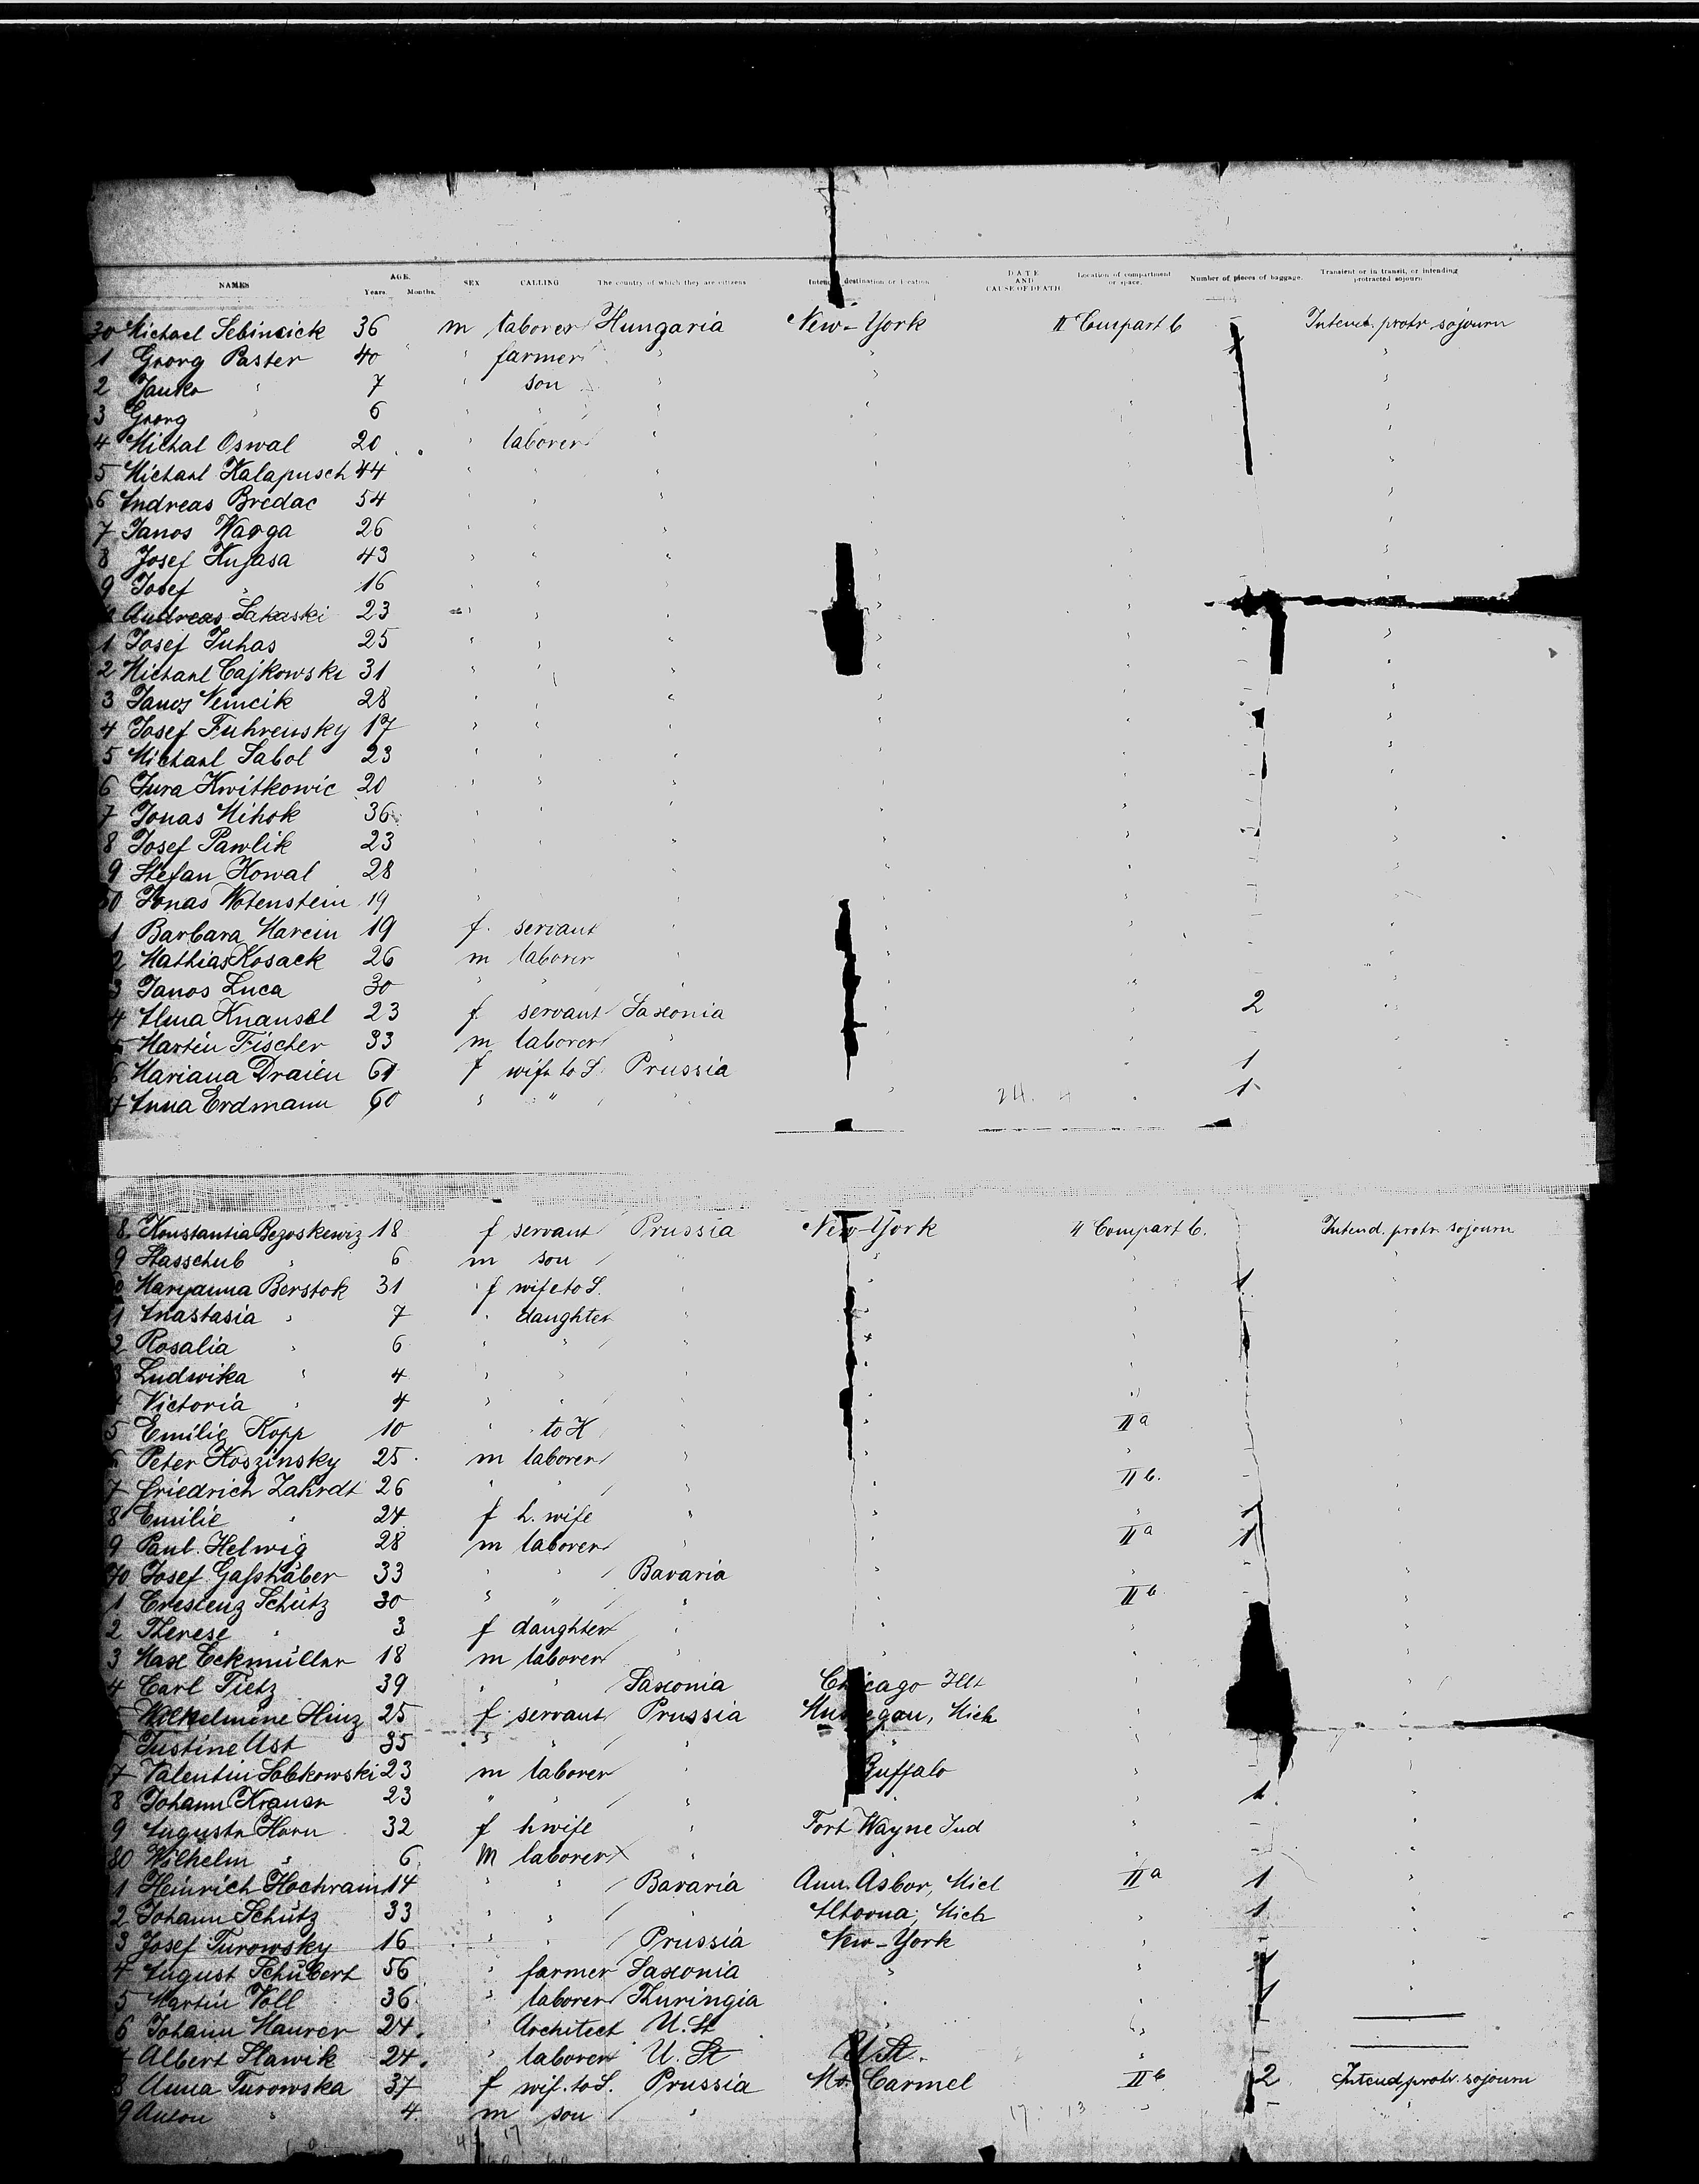 NAMES AGE. Years. Months. SEX CALLING The country of which they are citizens Intended destination or location DATE AND CAUSE OF DEATH Location of compartment or space. Number of pieces of baggage. Transient or in transit, or intending protracted sojourn
30 Michael Sebincick 36 m laborer Hungaria New-York II Compart b Intend. protr sojourn
1 Georg Paster 40 " farmer
2 Janko " 7 " son
3 Georg " 6
4 Michal Oswal 20 " laborer
5 Michael Kalapusch 44
6 Andreas Bredac 54
7 Janos Warga 26
8 Josef Hujasa 43
9 Josef " 16
Andreas Sakaski 23
1 Josef Juhas 25
2 Michael Cajkowski 31
3 Janos Nemcik 28
4 Josef Fuhrensky 17
5 Michael Sabol 23
6 Jura Kwitkowic 20
7 Jonas Mihok 36
8 Josef Pawlik 23
9 Stefan Kowal 28
50 Jonas Notenstein 19
1 Barbara Marcin 19 f. servant
2 Mathias Kosack 26 m laborer
3 Janos Luca 30
4 Alma Knausel 23 f. servant Saxonia 2
5 Martin Fischer 33 m laborer
6 Mariana Draien 61 f wife to S. Prussia 1
7 Anna Erdmann 60 " " 1
8. Konstantia Bezoskewiz 18 f servant Prussia New-York II Compart b. Intend. protr sojourn
9 Stasschub " 6 m son
Maryanna Berstok 31 f wife to S. 1
1 Anastasia " 7 " daughter
2 Rosalia " 6
3 Ludwika " 4
Victoria " 4
5 Emilie Kopp 10 " to H IIa
6 Peter Koszinsky 25 m laborer
7 Friedrich Zahrdt 26 IIb.
8 Emilie " 24 f h. wife 1
9 Paul Helwig 28 m laborer IIa 1
70 Josef Gasshäber 33 " " Bavaria
1 Crescenz Schütz 30 " " " IIb
2 Therese " 3 f daughter
3 Max Eckmüller 18 m laborer
4 Carl Tietz 39 " " Saxonia Chicago Ill
5 Wilhelmine Hinz 25 f servant Prussia Muskegon, Mich
Justine Ast 35
7 Valentin Sobkowski 23 m laborer Buffalo
8 Johann Krauser 23 1
9 Auguste Horn 32 f hwife Fort Wayne Ind
80 Wilhelm " 6 m laborer
1 Heinrich Hochrain 14 " " Bavaria Ann. Asbor, Mich IIa 1
2 Johann Schütz 33 " " " Altoona, Mich 1
3 Josef Turowsky 16 " " Prussia New-York
4 August Schubert 56 " farmer Saxonia " 1
5 Martin Voll 36 " laborer Thuringia 1
6 Johann Maurer 24. " Architect U. St
7 Albert Slawik 24. " laborer U. St U. St.
8 Anna Turowska 37 f wif. to S. Prussia Mt Carmel IIb 2 Intend protr. sojourn
9 Anton " 4 m son